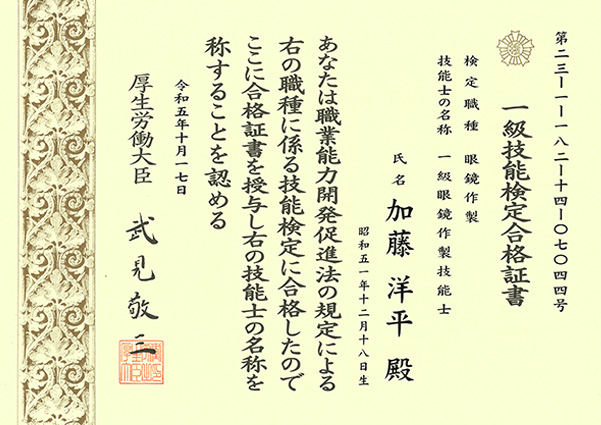 第二三―一―一八二―十四―〇七〇四四号
一級技能検定合格証書
検定職種 眼鏡作製
技能士の名称 一級眼鏡作製技能士
氏名 加藤洋平 殿
昭和五一年十二月十八日生
あなたは職業能力開発促進法の規定による
右の職種に係る技能検定に合格したので
ここに合格証書を授与し右の技能士の名称を
称することを認める
令和五年十月一七日
厚生労働大臣 武見敬三